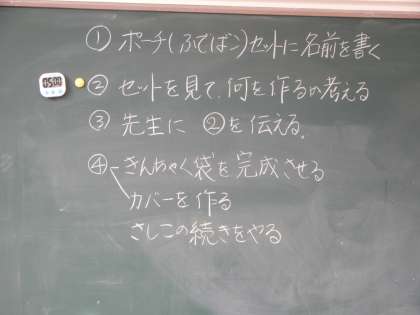 ① ポーチ(ふでばこ)セットに名前を書く
05:00
② セットを見て、何を作るの考える
③ 先生に ②を伝える。
④ きんちゃく袋を完成させる
カバーを作る
さしこの続きをやる